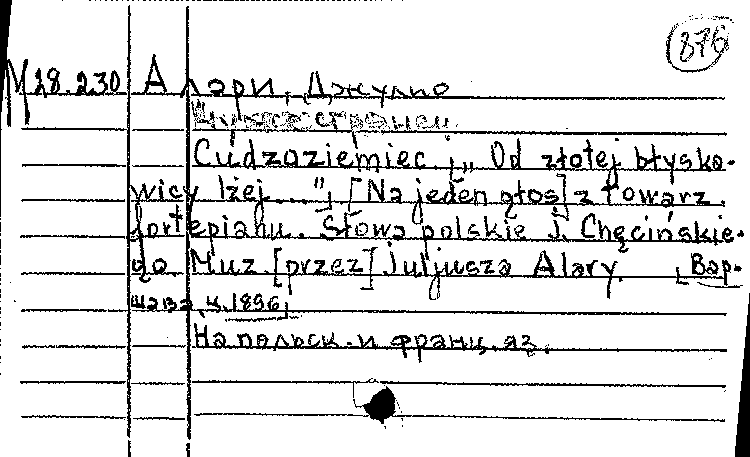 876
М 28.230 Алари, Джулио
Чужестранец.
Cudzoziemiec. „Od złotej błyska-
wicy lżej...", [Na jeden głos] z towarz.
fortepianu. Słowa polskie J. Chęcińskie-
go. Muz. [przez] Juljusza Alary. [Вар-
шава, ц. 1896]
На польск. и франц. яз.